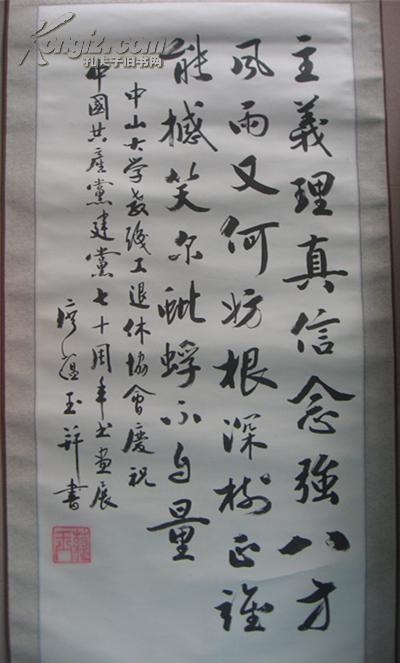 主義理真信念強八方
風雨又何妨根深樹正誰
能撼笑尔蚍蜉不自量
中山大学教职工退休協會慶祝
中國共產黨建黨七十周年书畫展
廖蕴玉并書
Kongfz.com
孔夫子旧书网